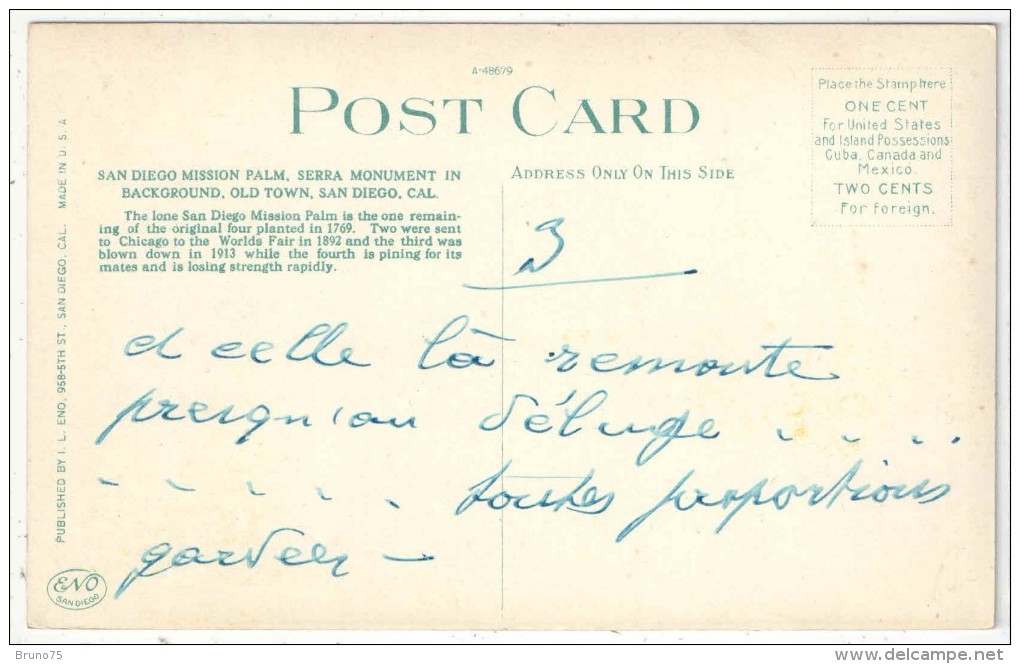 A-48679
POST CARD
Place the Stamp here
ONE CENT
For United States
and Island Possessions
Cuba, Canada and
Mexico.
TWO CENTS
For Foreign.
SAN DIEGO MISSION PALM, SERRA MONUMENT IN
BACKGROUND, OLD TOWN, SAN DIEGO, CAL.
The lone San Diego Mission Palm is the one remain-
ing of the original four planted in 1769. Two were sent
to Chicago to the Worlds Fair in 1892 and the third was
blown down in 1913 while the fourth is pining for its
mates and is losing strength rapidly.
ADDRESS ONLY ON THIS SIDE
3
et celle là remonte
presqu'au déluge . . . .
. . . . . toutes proportions
gardées –
PUBLISHED BY I. L. ENO, 958-5TH ST., SAN DIEGO, CAL. MADE IN U. S. A
ENO
SAN DIEGO
Bruno75
www.delcampe.net